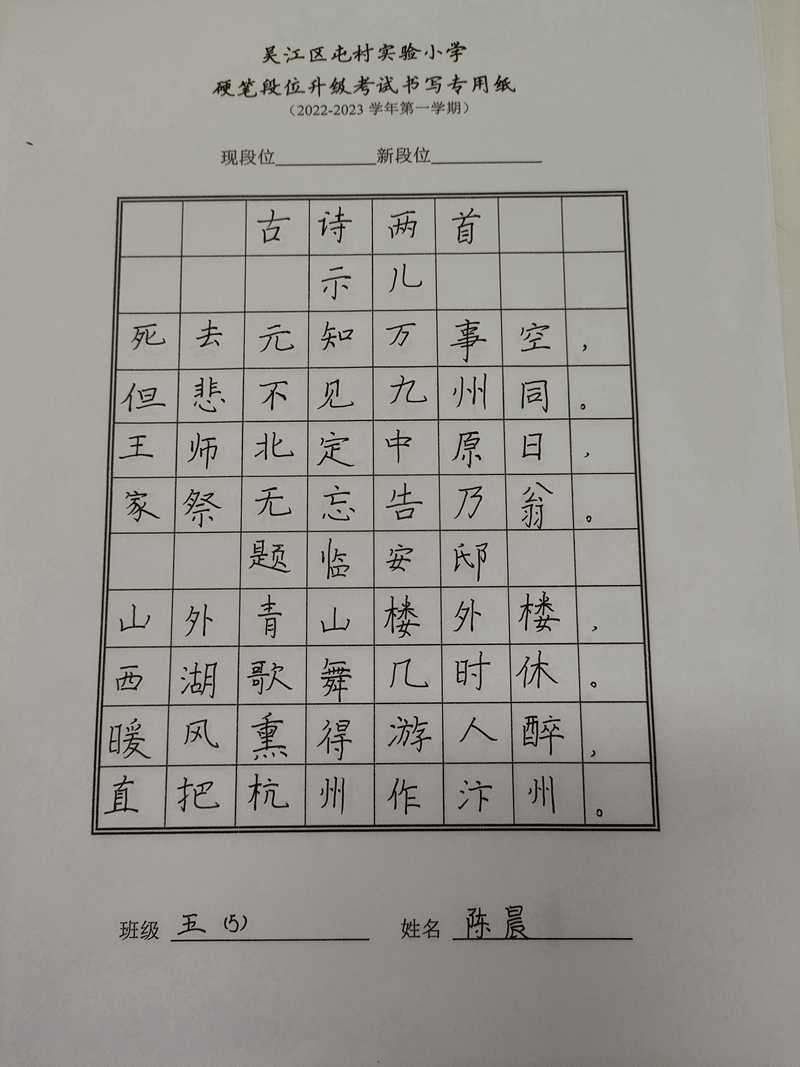 吴江区屯村实验小学
硬笔段位升级考试书写专用纸
(2022-2023 学年第一学期)
现段位__________新段位__________
古诗两首
示儿
死去元知万事空，
但悲不见九州同。
王师北定中原日，
家祭无忘告乃翁。
题临安邸
山外青山楼外楼，
西湖歌舞几时休。
暖风熏得游人醉，
直把杭州作汴州。
班级 五(5) 姓名 陈晨